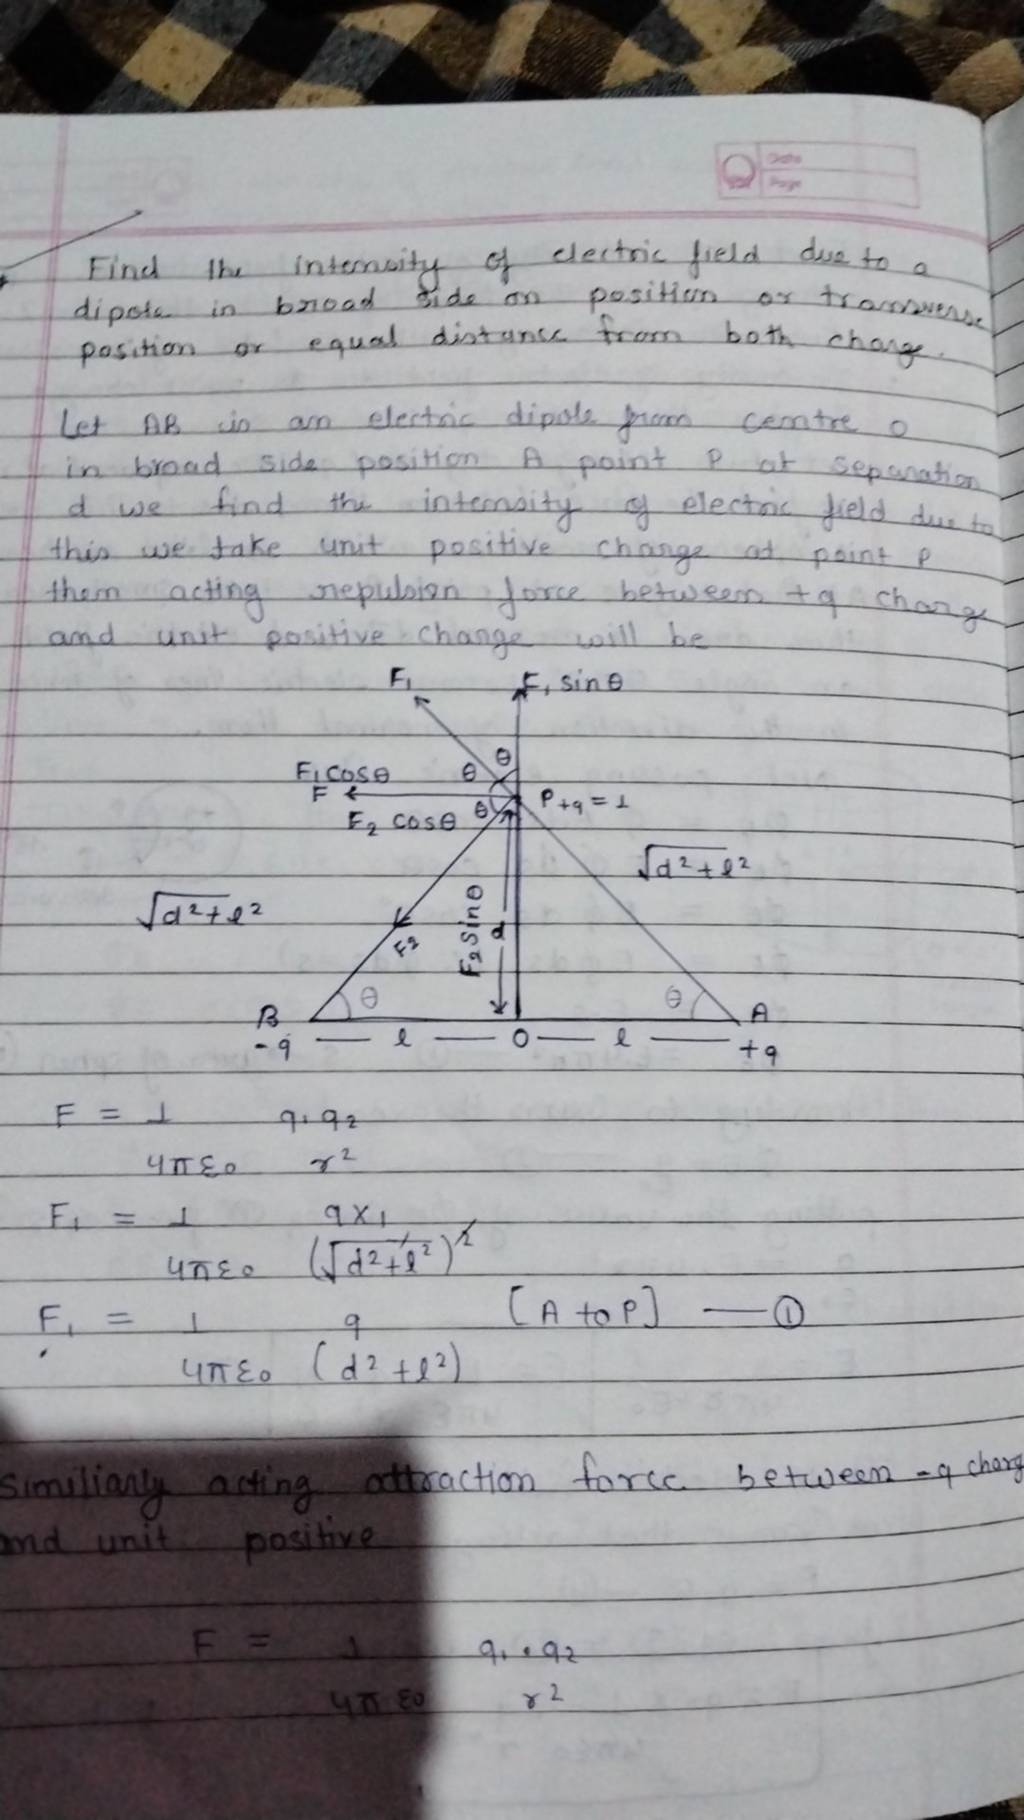 Date
Page
Find the intensity of electric field due to a
dipole in broad side on position or transverse
position or equal distance from both charge.
Let AB is an electric dipole from centre O
in broad side position A point P at separation
d we find the intensity of electric field due to
this we take unit positive charge at point P
then acting repulsion force between +q charge
and unit positive charge will be
F₁ F₁ sinθ
θ
F₁cosθ θ
F P+q = 1
F₂ cosθ θ
√d²+l²
√d²+l²
F₂ sinθ d
F₂
B θ θ A
-q l O l +q
F = 1 q₁q₂
4πε₀ r²
F₁ = 1 q×1
4πε₀ (√d²+l²)²
F₁ = 1 q [A to P] — ①
4πε₀ (d²+l²)
Similiarly acting attraction force between -q charg
and unit positive
F = 1 q₁.q₂
4πε₀ r²